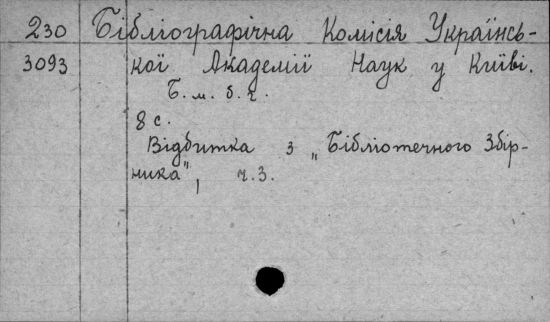 230 Бібліографічна Комісія Українсь-
3093 кої Академії Наук у Київі.
Б. м. б. г.
8 с.
Відбитка з „Бібліотечного Збір-
ника", ч. 3.